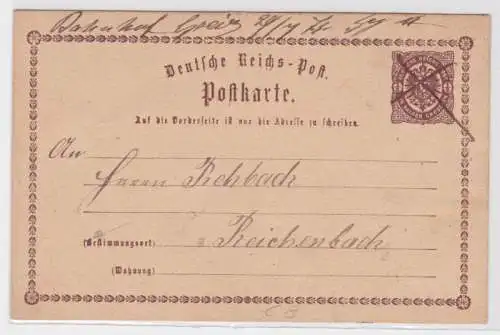 Bahnhof Greiz 29/7 74
Deutsche Reichs-Post.
Postkarte.
Auf die Vorderseite ist nur die Adresse zu schreiben.
An
Herrn Rehbach
Reichenbach
(Bestimmungsort)
(Wohnung)